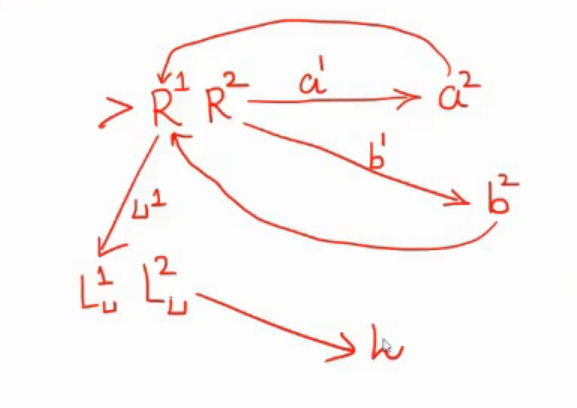 > R¹ R² a¹ a²
b¹
b²
⊔¹
L¹⊔ L²⊔
h